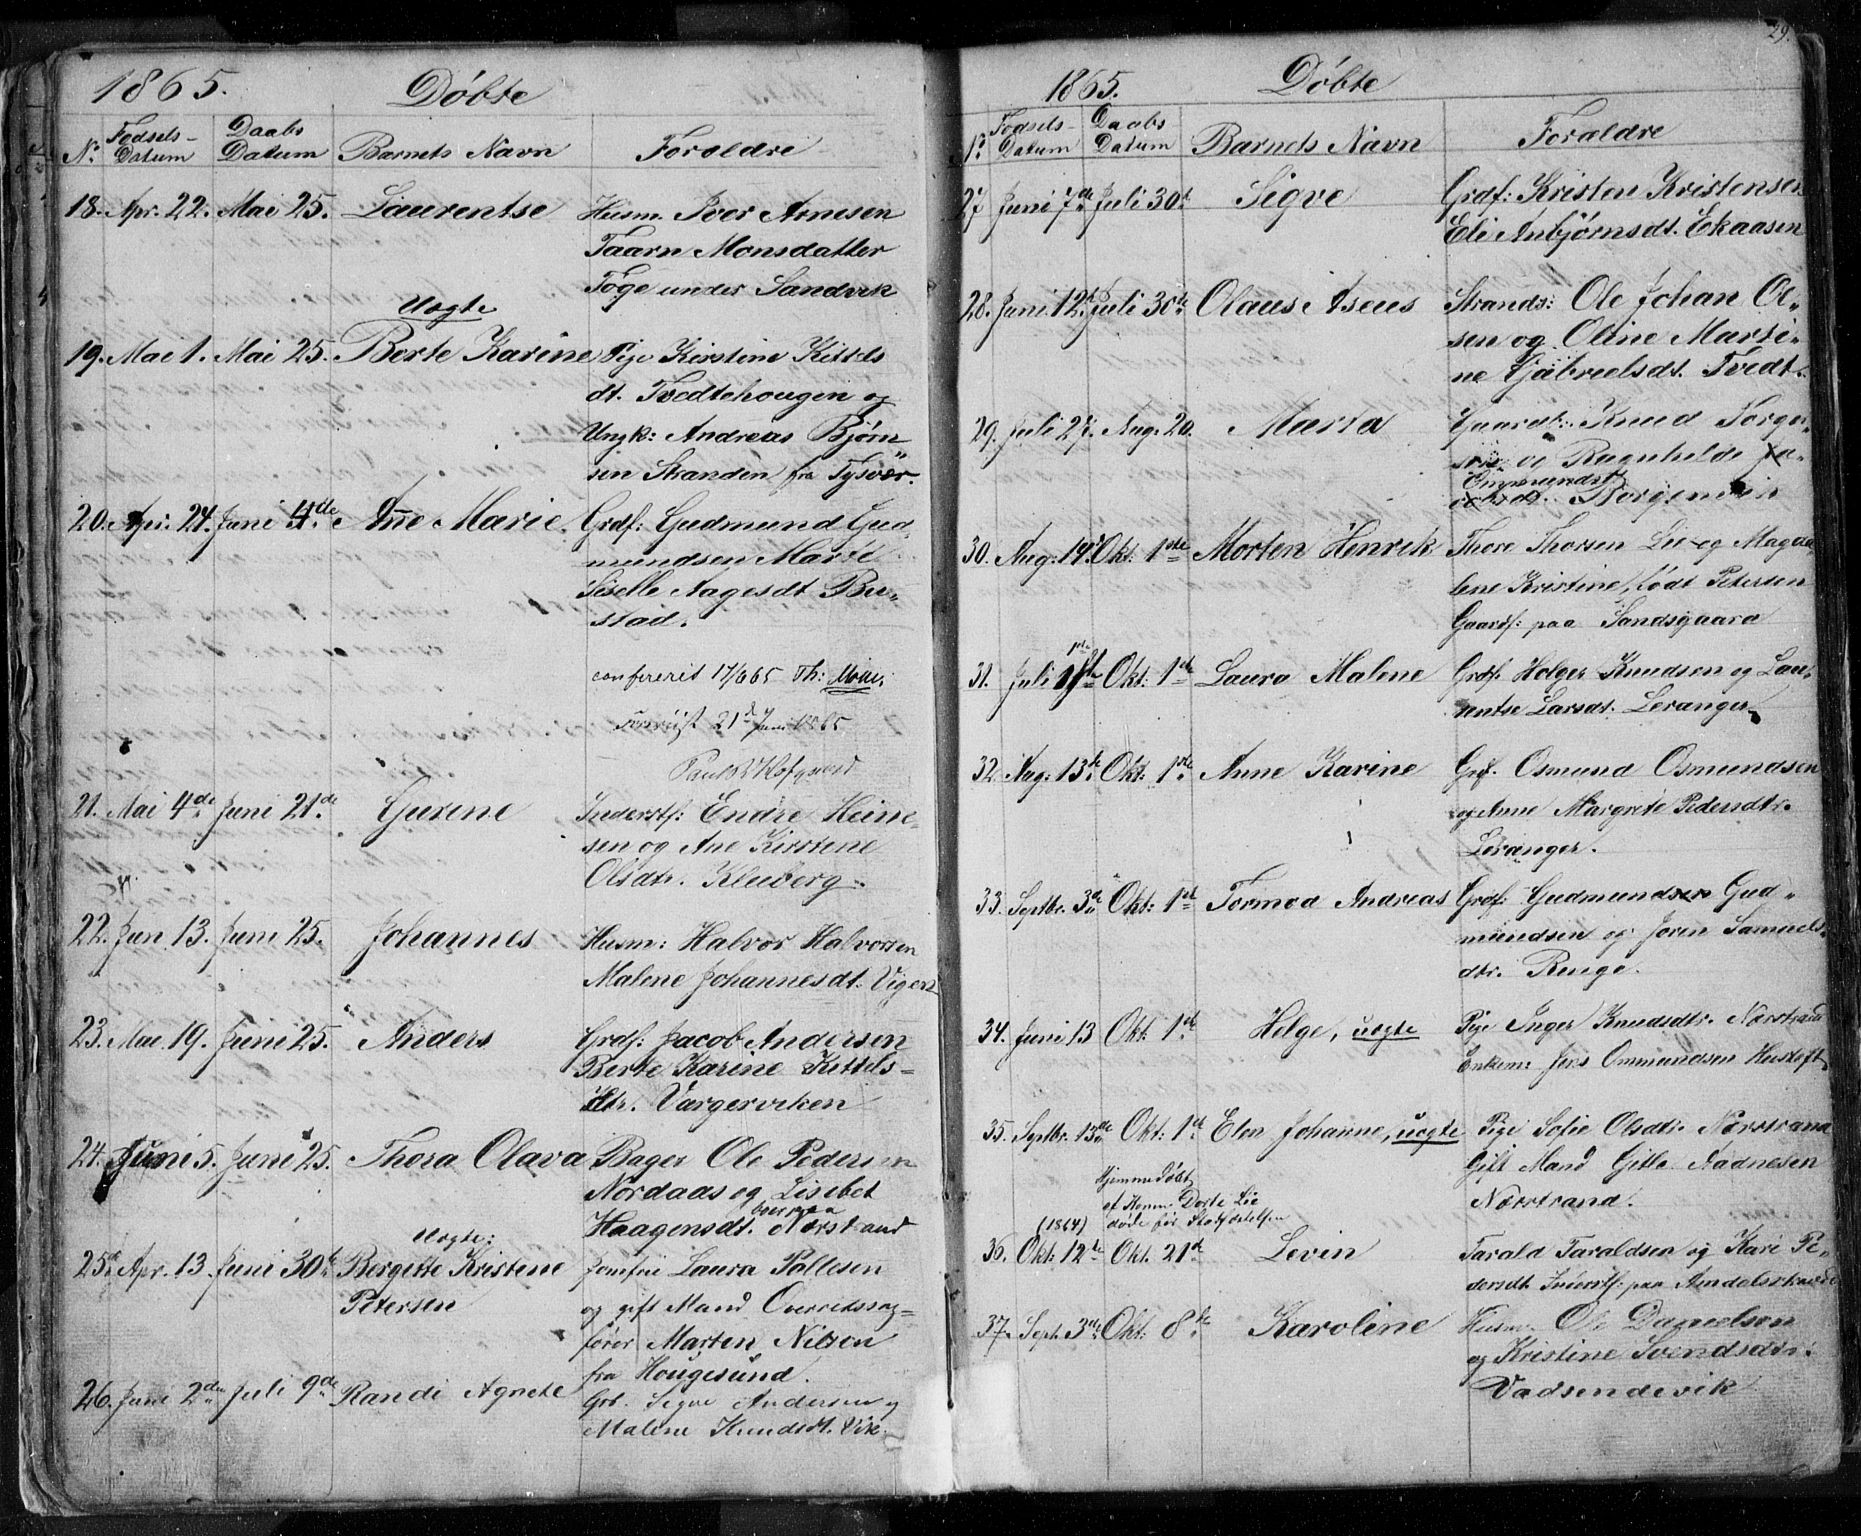 1865. Døbte
No. Fødsels-Datum Daabs Datum Barnets Navn Forældre
18. Apr. 22. Mai 25. Laurentse Husm. Iver Arnesen
Taarn Monsdatter
Töge under Sandvik
Uægte
19. Mai 1. Mai 25. Berte Karine Pige Kirstine Kittels
dt. Tvedtehougen og
Ungk: Andreas Bjørn
sen Stranden fra Tysvær.
20. Apr. 24. Juni 4de Ane Marie. Grdf: Gudmund Gud
mundsen Marte
Siselle Aagesdt Bu-
stad.
confereret 17/6 65 Th: Moue.
21de Juni 1865
21. Mai 4de Juni 21de Gurene Inderstf: Endre Heine-
sen og Ane Kirstene
Olsdtr. Kleiberg.
22. Jun 13. Juni 25. Johannes Husm: Halvor Halvorsen
Malene Johannesdt. Vigen
23. Mai 19. Juni 25. Anders Grdf: Jacob Andersen
Berte Karine Kittels-
dtr. Vargerviken
24. Juni 5. Juni 25. Thora Olava Bager Ole Pedersen
Nordaas og Lisebet
Haagensdt. Nørstrand
Uægte:
25. Apr. 13. Juni 30te Bergitte Kristine Jomfru Laura Pallesen
Petersen og gift Mand Overretssag-
fører Marten Nilsen
fra Hougesund.
26. Juni 2den Juli 9de Randi Agnete Grb. Sigve Andersen og
Malene Knudsdt. Vik.
29.
1865. Døbte
No. Fødsels-Datum Daabs Datum Barnets Navn Forældre
27 Juni 7de Juli 30t Sigve Grdf: Kristen Kristensen
Eli Anbjørnsdt. Ekaasen
28. Juni 12te Juli 30te Olaus Aseus Strands: Ole Johan Ol-
sen og Oline Marti-
ne Gjabrielsdt. Tvedt.
29. Juli 27. Aug. 20. Marta Gaardb: Knud Torger-
sen og Ragnhilde
Ommundsdt Borgenvin
30. Aug: 14. Okt. 1ste Morten Henrik Thore Thorsen Lie og Magda
lene Kristine, født Petersen
Gaardf: paa Sandsgaard
31. Juli 1ste Okt: 1ste Laura Malene Grdf. Holger Knudsen og Lau-
rentse Larsdt. Leranger.
32. Aug: 13de Okt: 1ste Anne Karine Grf. Osmund Osmundsen
og Anne Margrete Pedersdtr.
Leranger.
33. Septbr. 3de Okt: 1ste Tormod Andreas Grdf: Gudmundsen Gud-
mundsen og Joren Samuels-
dtr. Runge.
34. Juni 13 Okt. 1ste Helge, uægte Pige Inger Knudsdtr. Nørstrand
Enkem: Jens Ommundsen Hustoft
35. Septbr. 13de Okt: 1ste Elen Johanne, uægte Pige Sofie Olsdtr Nørstrand
Gift Mand Gitle Aadnesen
Nørstrand.
Hjemmedøbt
af Konen Dorte Lie
døde før Stadfæstelsen
(1864)
36. Okt: 12te Okt. 21de Levin Tarald Taraldsen og Kari Pe-
dersdt Inderstf: paa Amdalsknæde
37. Septb. 3de Okt: 8de Karoline Husm. Ole Danielsen
og Kristine Svendsdtr.
Vadsendevik